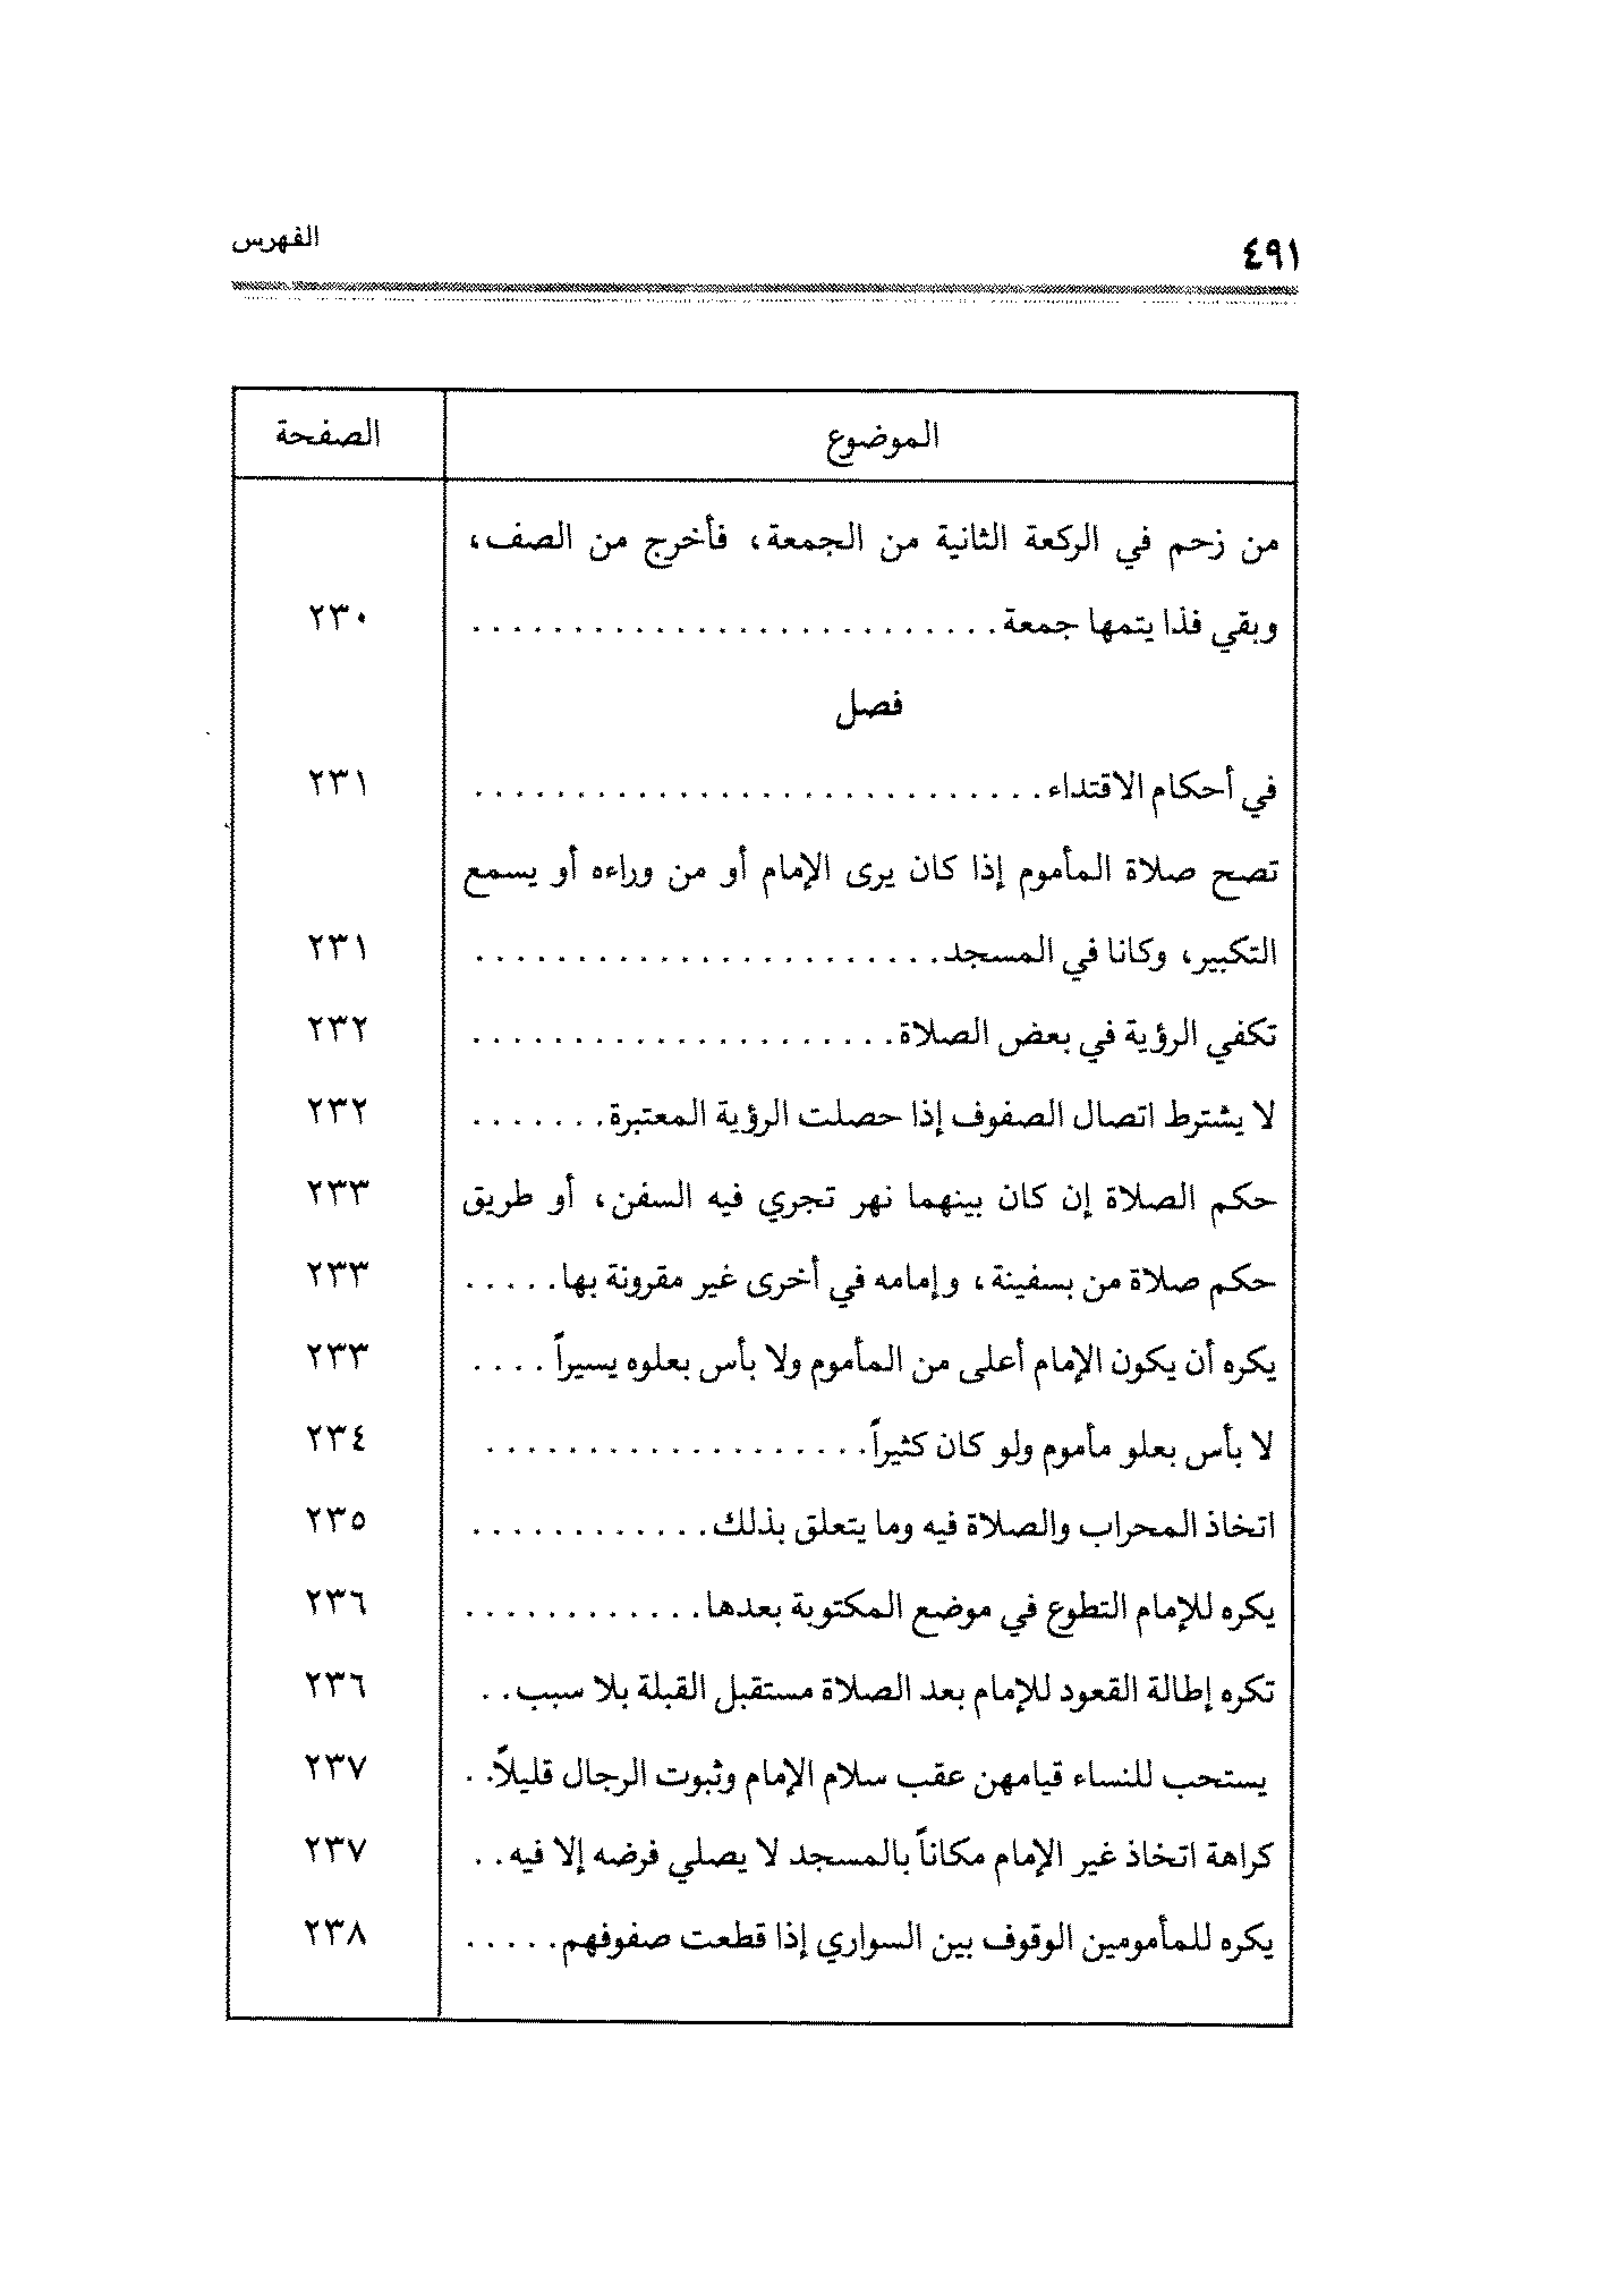 ٤٩١ الفهرس
الموضوع الصفحة
من زحم في الركعة الثانية من الجمعة، فأخرج من الصف،
وبقي فذا يتمها جمعة . . . . . . . . . . . . . . . . . . . . . . . . . ٢٣٠
فصل
في أحكام الاقتداء . . . . . . . . . . . . . . . . . . . . . . . . . . . ٢٣١
تصح صلاة المأموم إذا كان يرى الإمام أو من وراءه أو يسمع
التكبير، وكانا في المسجد . . . . . . . . . . . . . . . . . . . . . . ٢٣١
تكفي الرؤية في بعض الصلاة . . . . . . . . . . . . . . . . . . . . ٢٣٢
لا يشترط اتصال الصفوف إذا حصلت الرؤية المعتبرة . . . . . . . ٢٣٢
حكم الصلاة إن كان بينهما نهر تجري فيه السفن، أو طريق ٢٣٣
حكم صلاة من بسفينة، وإمامه في أخرى غير مقرونة بها . . . . . ٢٣٣
يكره أن يكون الإمام أعلى من المأموم ولا بأس بعلوه يسيراً . . . . ٢٣٣
لا بأس بعلو مأموم ولو كان كثيراً . . . . . . . . . . . . . . . . . . . ٢٣٤
اتخاذ المحراب والصلاة فيه وما يتعلق بذلك . . . . . . . . . . . . ٢٣٥
يكره للإمام التطوع في موضع المكتوبة بعدها . . . . . . . . . . . . ٢٣٦
تكره إطالة القعود للإمام بعد الصلاة مستقبل القبلة بلا سبب . . ٢٣٦
يستحب للنساء قيامهن عقب سلام الإمام وثبوت الرجال قليلاً . . ٢٣٧
كراهة اتخاذ غير الإمام مكاناً بالمسجد لا يصلي فرضه إلا فيه . . ٢٣٧
يكره للمأمومين الوقوف بين السواري إذا قطعت صفوفهم . . . . . ٢٣٨